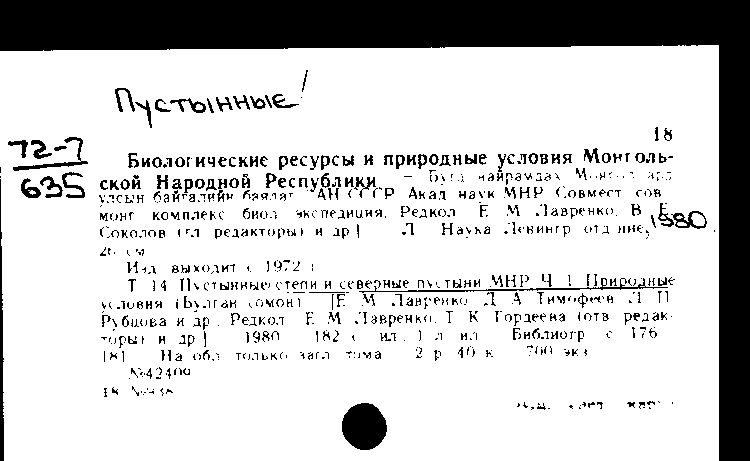 Пустынные!
18
72-7
635
Биологические ресурсы и природные условия Монголь-
ской Народной Республики = Бугд найрамдах Монгол ард
улсын байгалийн баялаг АН СССР Акад наук МНР Совмест сов
монг комплекс биол экспедиция. Редкол Е М Лавренко, В Е
Соколов (гл редакторы) и др ] Л Наука Ленингр отд ние, 1980
26 см
Изд выходит с 1972 г
Т 14 Пустынные степи и северные пустыни МНР Ч 1 Природные
условия (Булган сомон) [Е М Лавренко Д А Тимофеев Л П
Рубцова и др , Редкол Е М Лавренко, Т К Гордеева (отв редак-
торы) и др ] 1980 182 с ил , 1 л ил Библиогр с 176
181 На обл только загл тома 2 р 40 к 700 экз
№42409
18 №